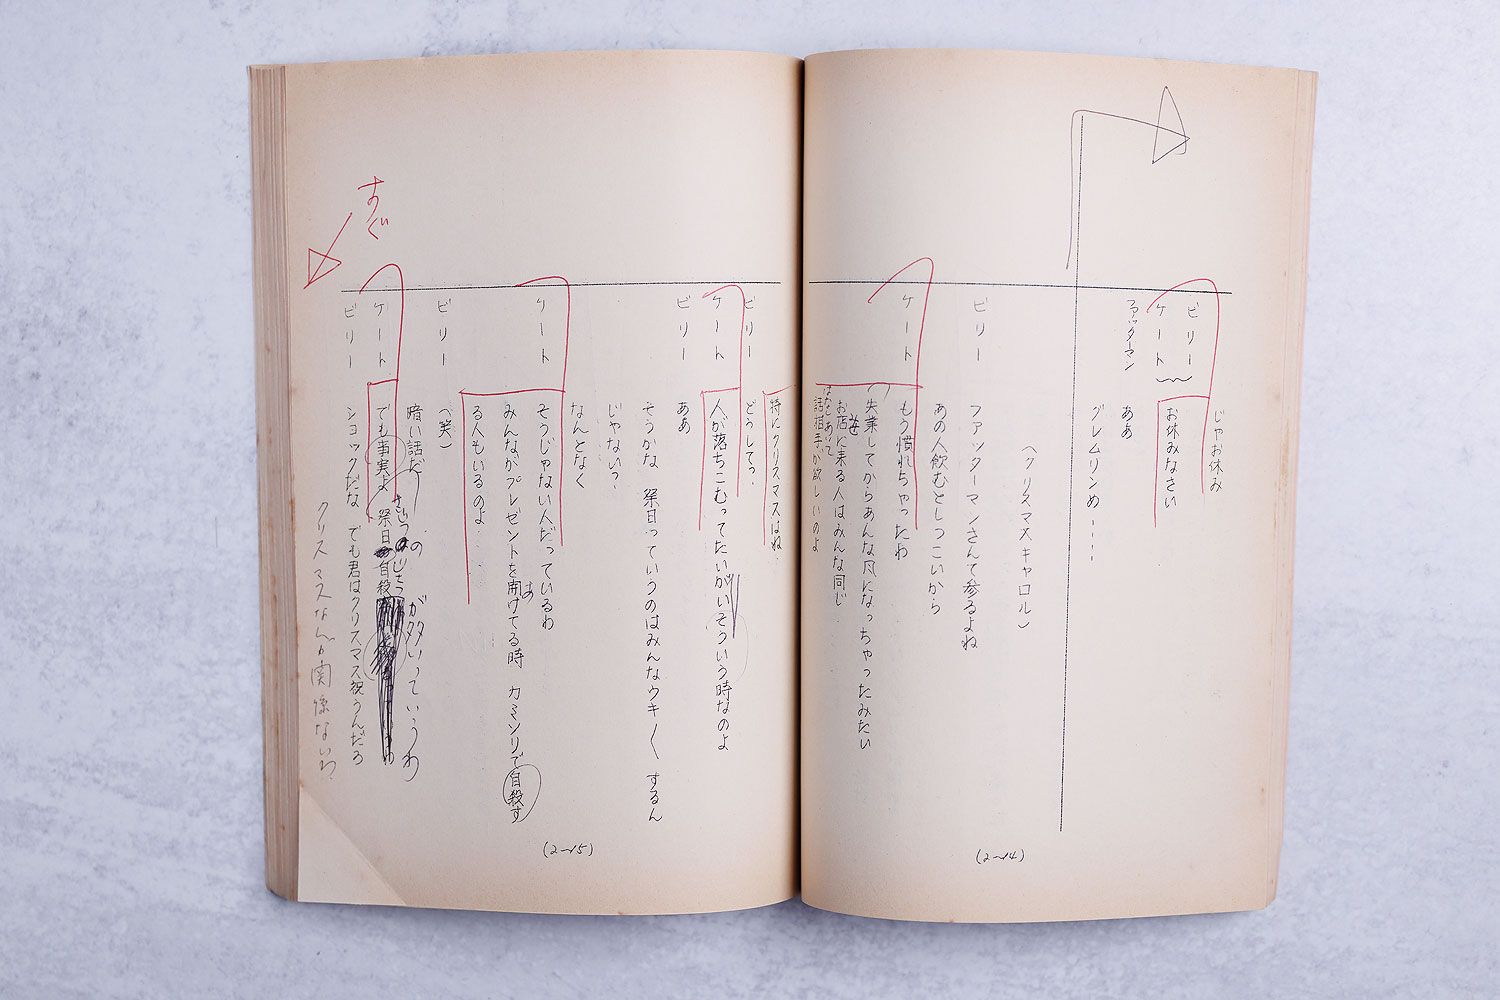 じゃお休み
ビリー
ケート お休みなさい
ファッターマン ああ
グレムリンめ
(クリスマスキャロル)
ビリー ファッターマンさんて参るよね
あの人飲むとしつこいから
ケート もう慣れちゃったわ
失業してからあんな風になっちゃったみたい
お店に来る人はみんな同じ
話相手が欲しいのよ
はなしあいて
(2-14)
特にクリスマスはね
ビリー どうしてっ
ケート 人が落ちこむってたいがいそういう時なのよ
ビリー ああ
そうかな 祭日っていうのはみんなウキ〳〵するん
じゃないっ
なんとなく
ケート そうじゃない人だっているわ
みんながプレゼントを開けてる時 カミソリで自殺す
あ
る人もいるのよ
ビリー (笑)
暗い話だ
ケート でも事実よ 祭日の自殺
さいじつ
じさつ
が多いっていうわ
ビリー ショックだな でも君はクリスマス祝うんだろ
クリスマスなんか関係ないわ
すぐ
(2-15)